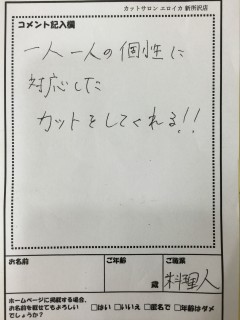 カットサロン エロイカ 新所沢店
コメント記入欄
一人一人の個性に
対応した
カットをしてくれる!!
お名前
ご年齢
ご職業
歳
料理人
ホームページに掲載する場合、
お名前を載せてもよろしい
でしょうか?
□はい □いいえ □匿名で □年齢はダメ